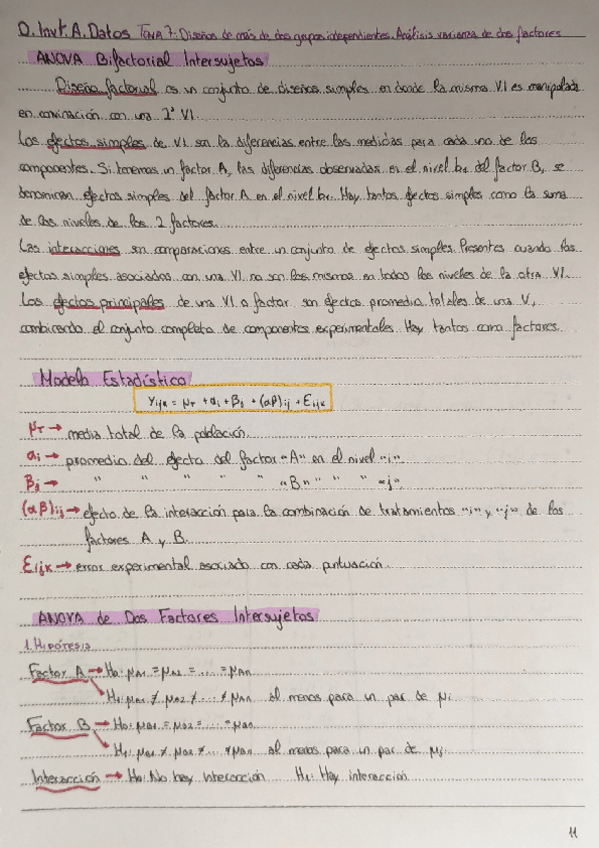 D. Invt. A. Datos Tema 7: Diseños de más de dos grupos independientes. Análisis varianza de dos factores
ANOVA Bifactorial Intersujetos
Diseño factorial es un conjunto de diseños simples en donde la misma V.I es manipulada
en convinación con una 2ª V.I.
Los efectos simples de V.I son la diferencias entre las medidas para cada uno de los
componentes. Si tenemos un factor A, las diferencias observadas en el nivel b1 del factor B, se
denominan efectos simples del factor A en el nivel b1. Hay tantos efectos simples como la suma
de los niveles de los 2 factores.
Las interacciones son comparaciones entre un conjunto de efectos simples. Presentes cuando los
efectos simples asociados con una V.I no son los mismos en todos los niveles de la otra V.I.
Los efectos principales de una V.I o factor son efectos promedio totales de una V,
combinando el conjunto completo de componentes experimentales. Hay tantos como factores.
Modelo Estadístico
Yijk = μT + αi + βj + (αβ)ij + Eijk
μT → media total de la población.
αi → promedio del efecto del factor "A" en el nivel "i".
βj → " " " " " "B" " " "j".
(αβ)ij → efecto de la interacción para la combinación de tratamientos "i" y "j" de los
factores A y B.
Eijk → error experimental asociado con cada puntuación.
ANOVA de Dos Factores Intersujetos
1. Hipótesis
Factor A → H0: μA1 = μA2 = ... = μAn
H1: μA1 ≠ μA2 ≠ ... ≠ μAn al menos para un par de μi
Factor B → H0: μB1 = μB2 = ... = μBn
H1: μB1 ≠ μB2 ≠ ... ≠ μBn al menos para un par de μj
Interacción → H0: No hay interacción H1: Hay interacción
11